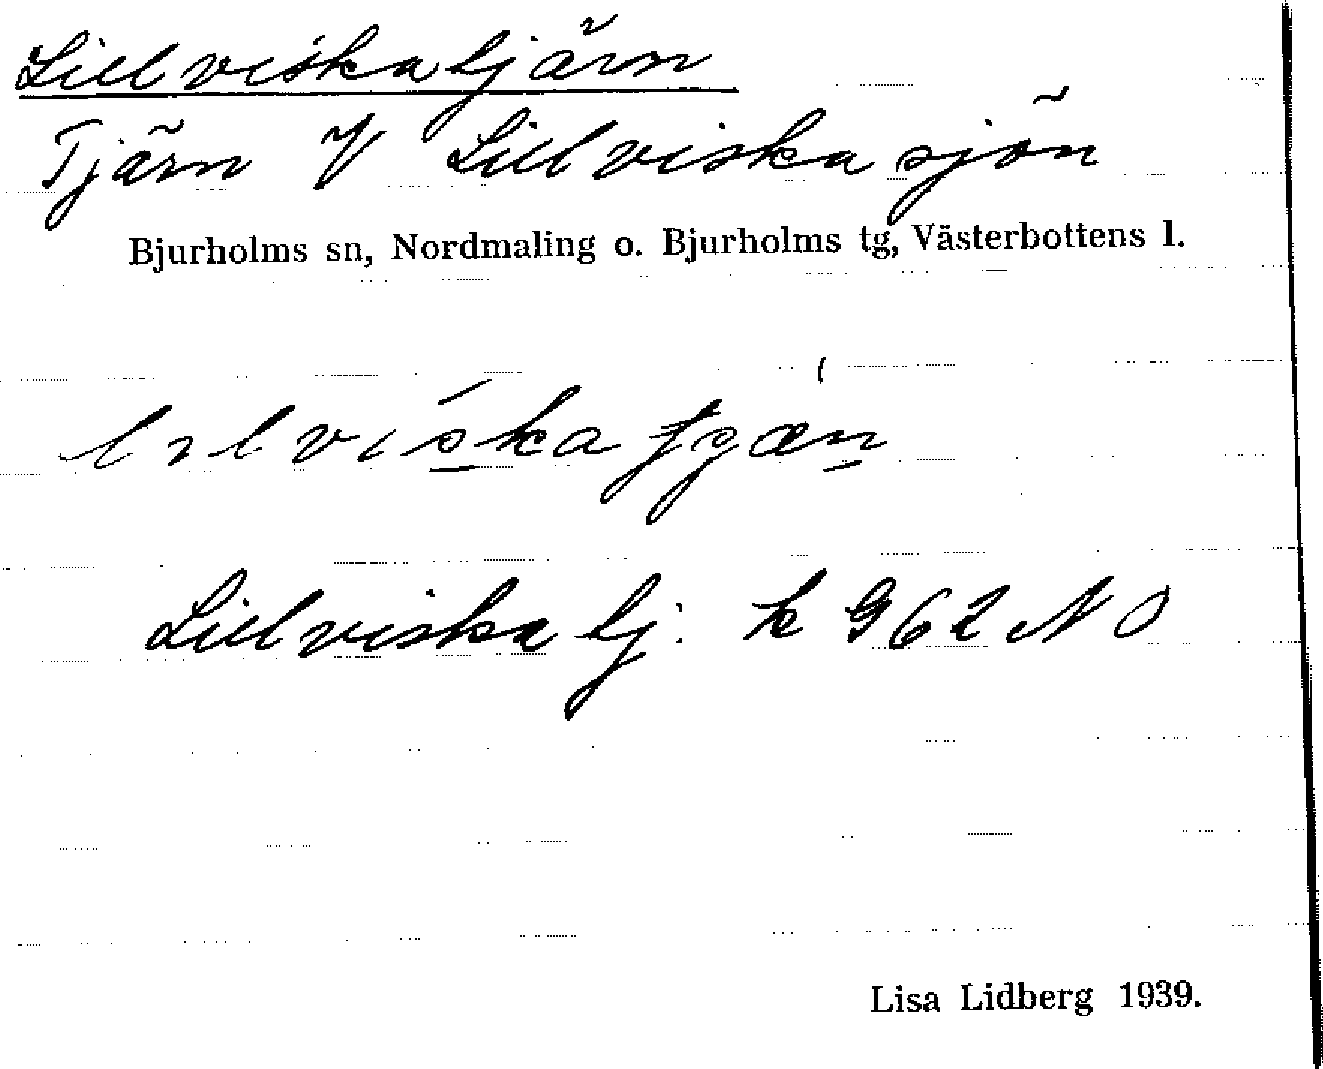 Lillviskatjärn
Tjärn V Lillviskasjön
Bjurholms sn, Nordmaling o. Bjurholms tg, Västerbottens l.
Lillviskatj: k G62 NO
Lisa Lidberg 1939.